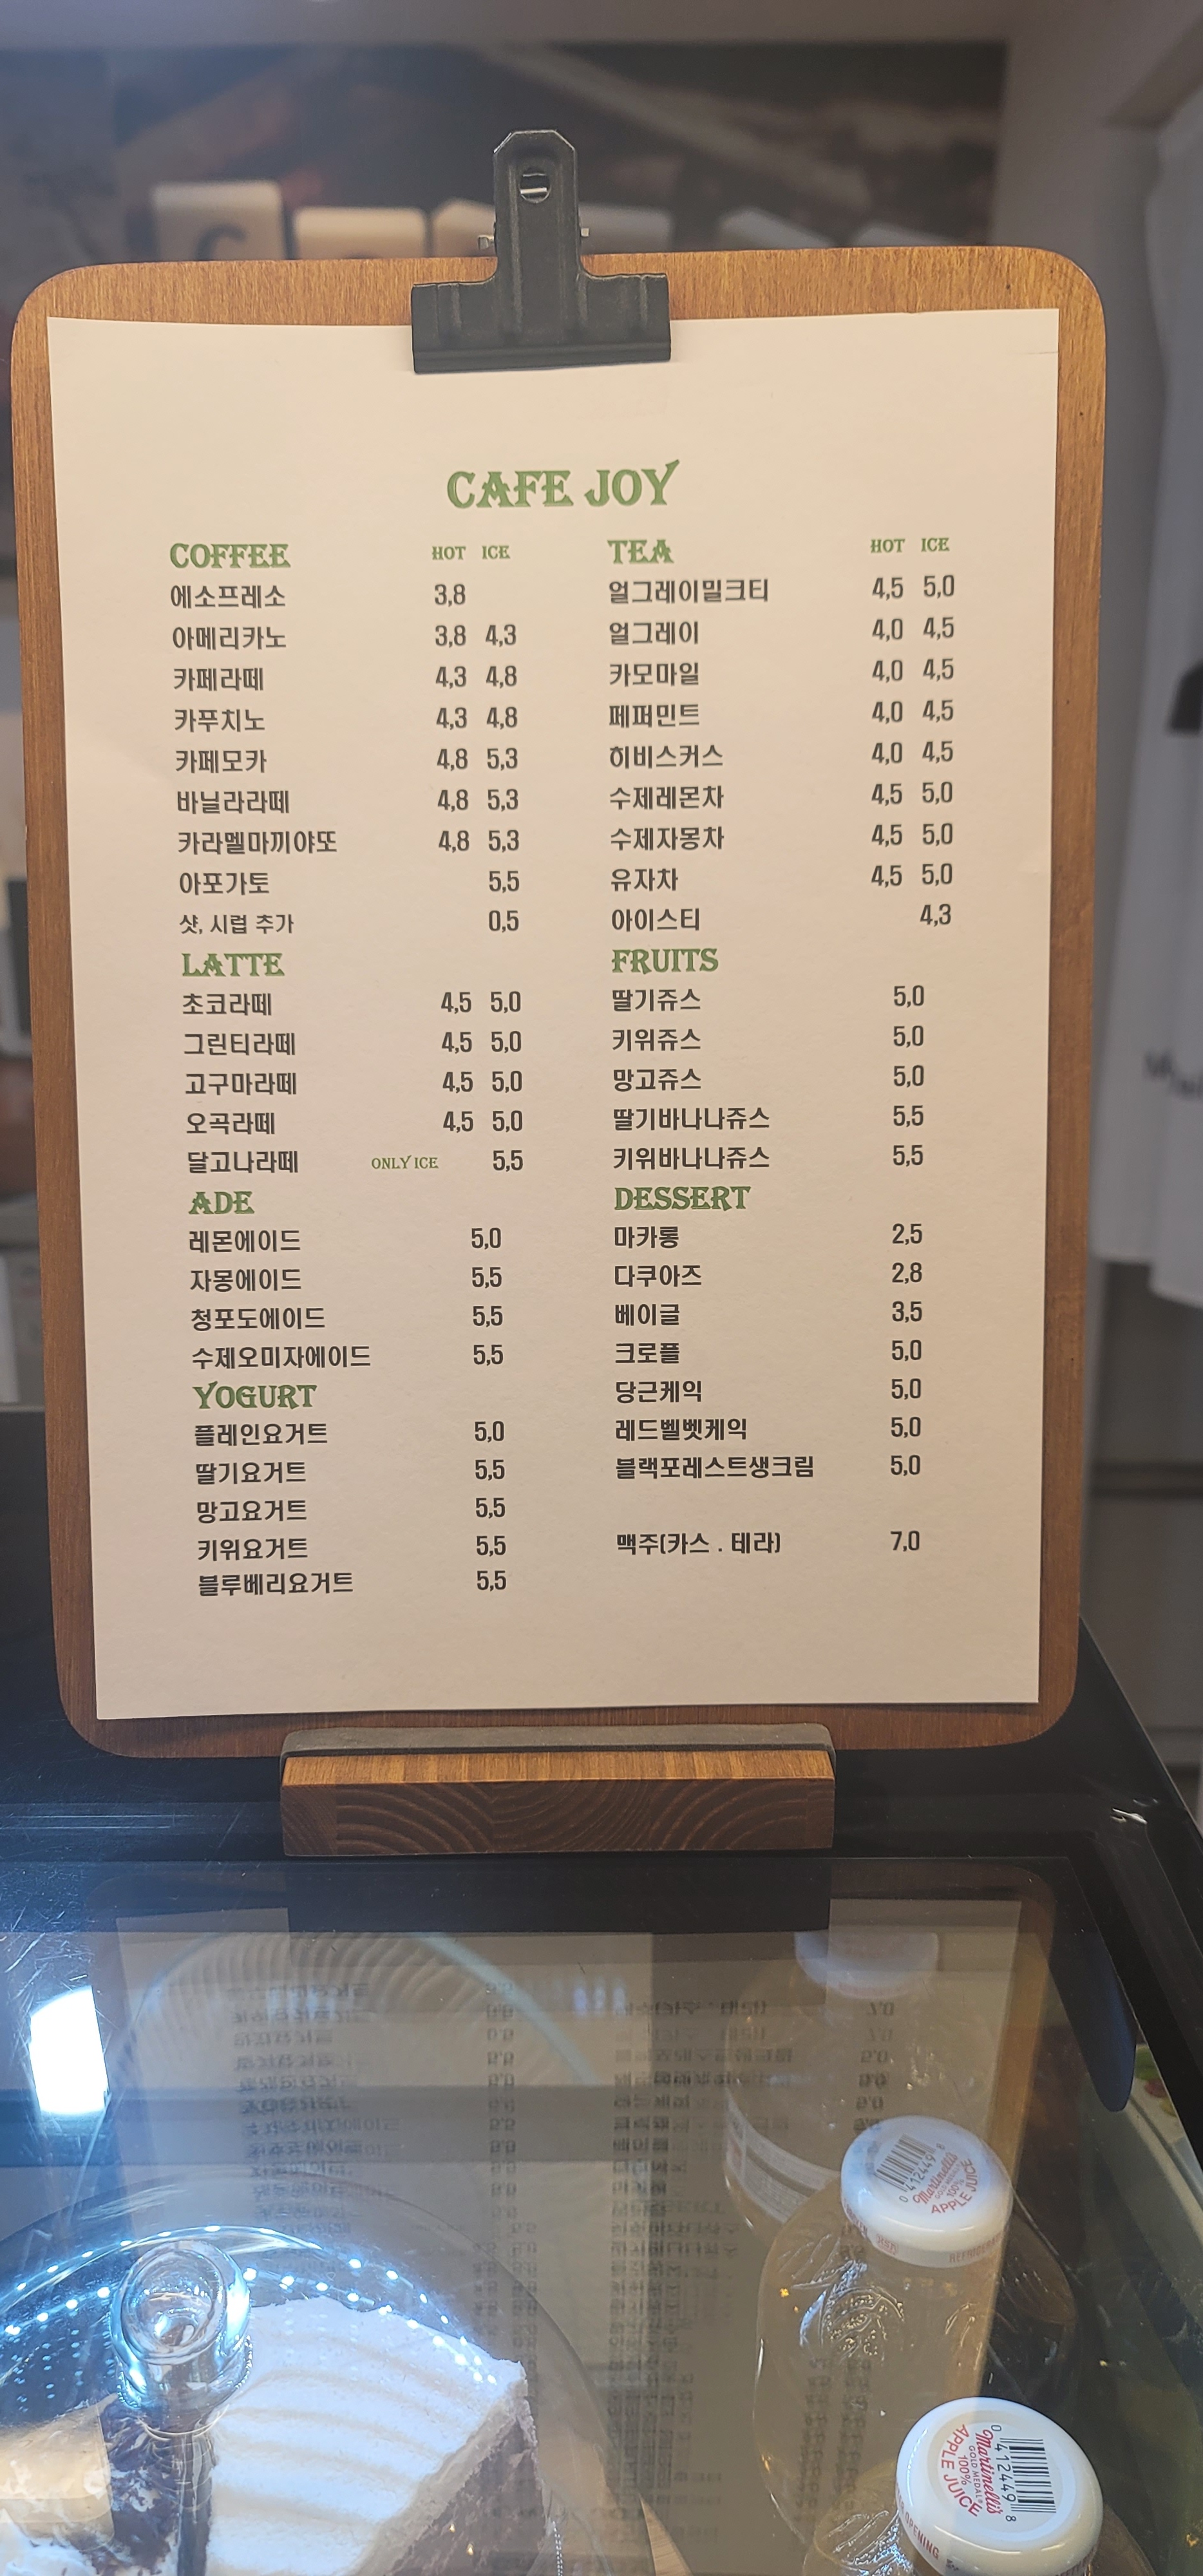 CAFE JOY
COFFEE HOT ICE
에소프레소 3,8
아메리카노 3,8 4,3
카페라떼 4,3 4,8
카푸치노 4,3 4,8
카페모카 4,8 5,3
바닐라라떼 4,8 5,3
카라멜마끼야또 4,8 5,3
아포가토 5,5
샷, 시럽 추가 0,5
LATTE
초코라떼 4,5 5,0
그린티라떼 4,5 5,0
고구마라떼 4,5 5,0
오곡라떼 4,5 5,0
달고나라떼 ONLY ICE 5,5
ADE
레몬에이드 5,0
자몽에이드 5,5
청포도에이드 5,5
수제오미자에이드 5,5
YOGURT
플레인요거트 5,0
딸기요거트 5,5
망고요거트 5,5
키위요거트 5,5
블루베리요거트 5,5
TEA HOT ICE
얼그레이밀크티 4,5 5,0
얼그레이 4,0 4,5
카모마일 4,0 4,5
페퍼민트 4,0 4,5
히비스커스 4,0 4,5
수제레몬차 4,5 5,0
수제자몽차 4,5 5,0
유자차 4,5 5,0
아이스티 4,3
FRUITS
딸기쥬스 5,0
키위쥬스 5,0
망고쥬스 5,0
딸기바나나쥬스 5,5
키위바나나쥬스 5,5
DESSERT
마카롱 2,5
다쿠아즈 2,8
베이글 3,5
크로플 5,0
당근케익 5,0
레드벨벳케익 5,0
블랙포레스트생크림 5,0
맥주(카스 . 테라) 7,0
0 412449 8
Martinelli's
GOLD MEDAL
100%
APPLE JUICE
0 412449 8
Martinelli's
GOLD MEDAL
100%
APPLE JUICE
OPENING